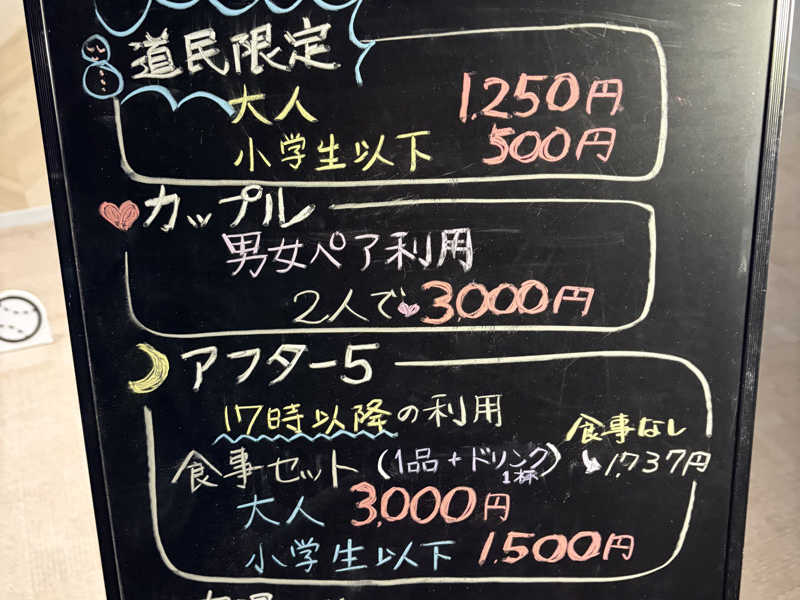 道民限定
大人 1,250円
小学生以下 500円
カップル
男女ペア利用
2人で 3,000円
アフター5
17時以降の利用
食事なし
食事セット (1品+ドリンク1杯) 1,737円
大人 3,000円
小学生以下 1,500円